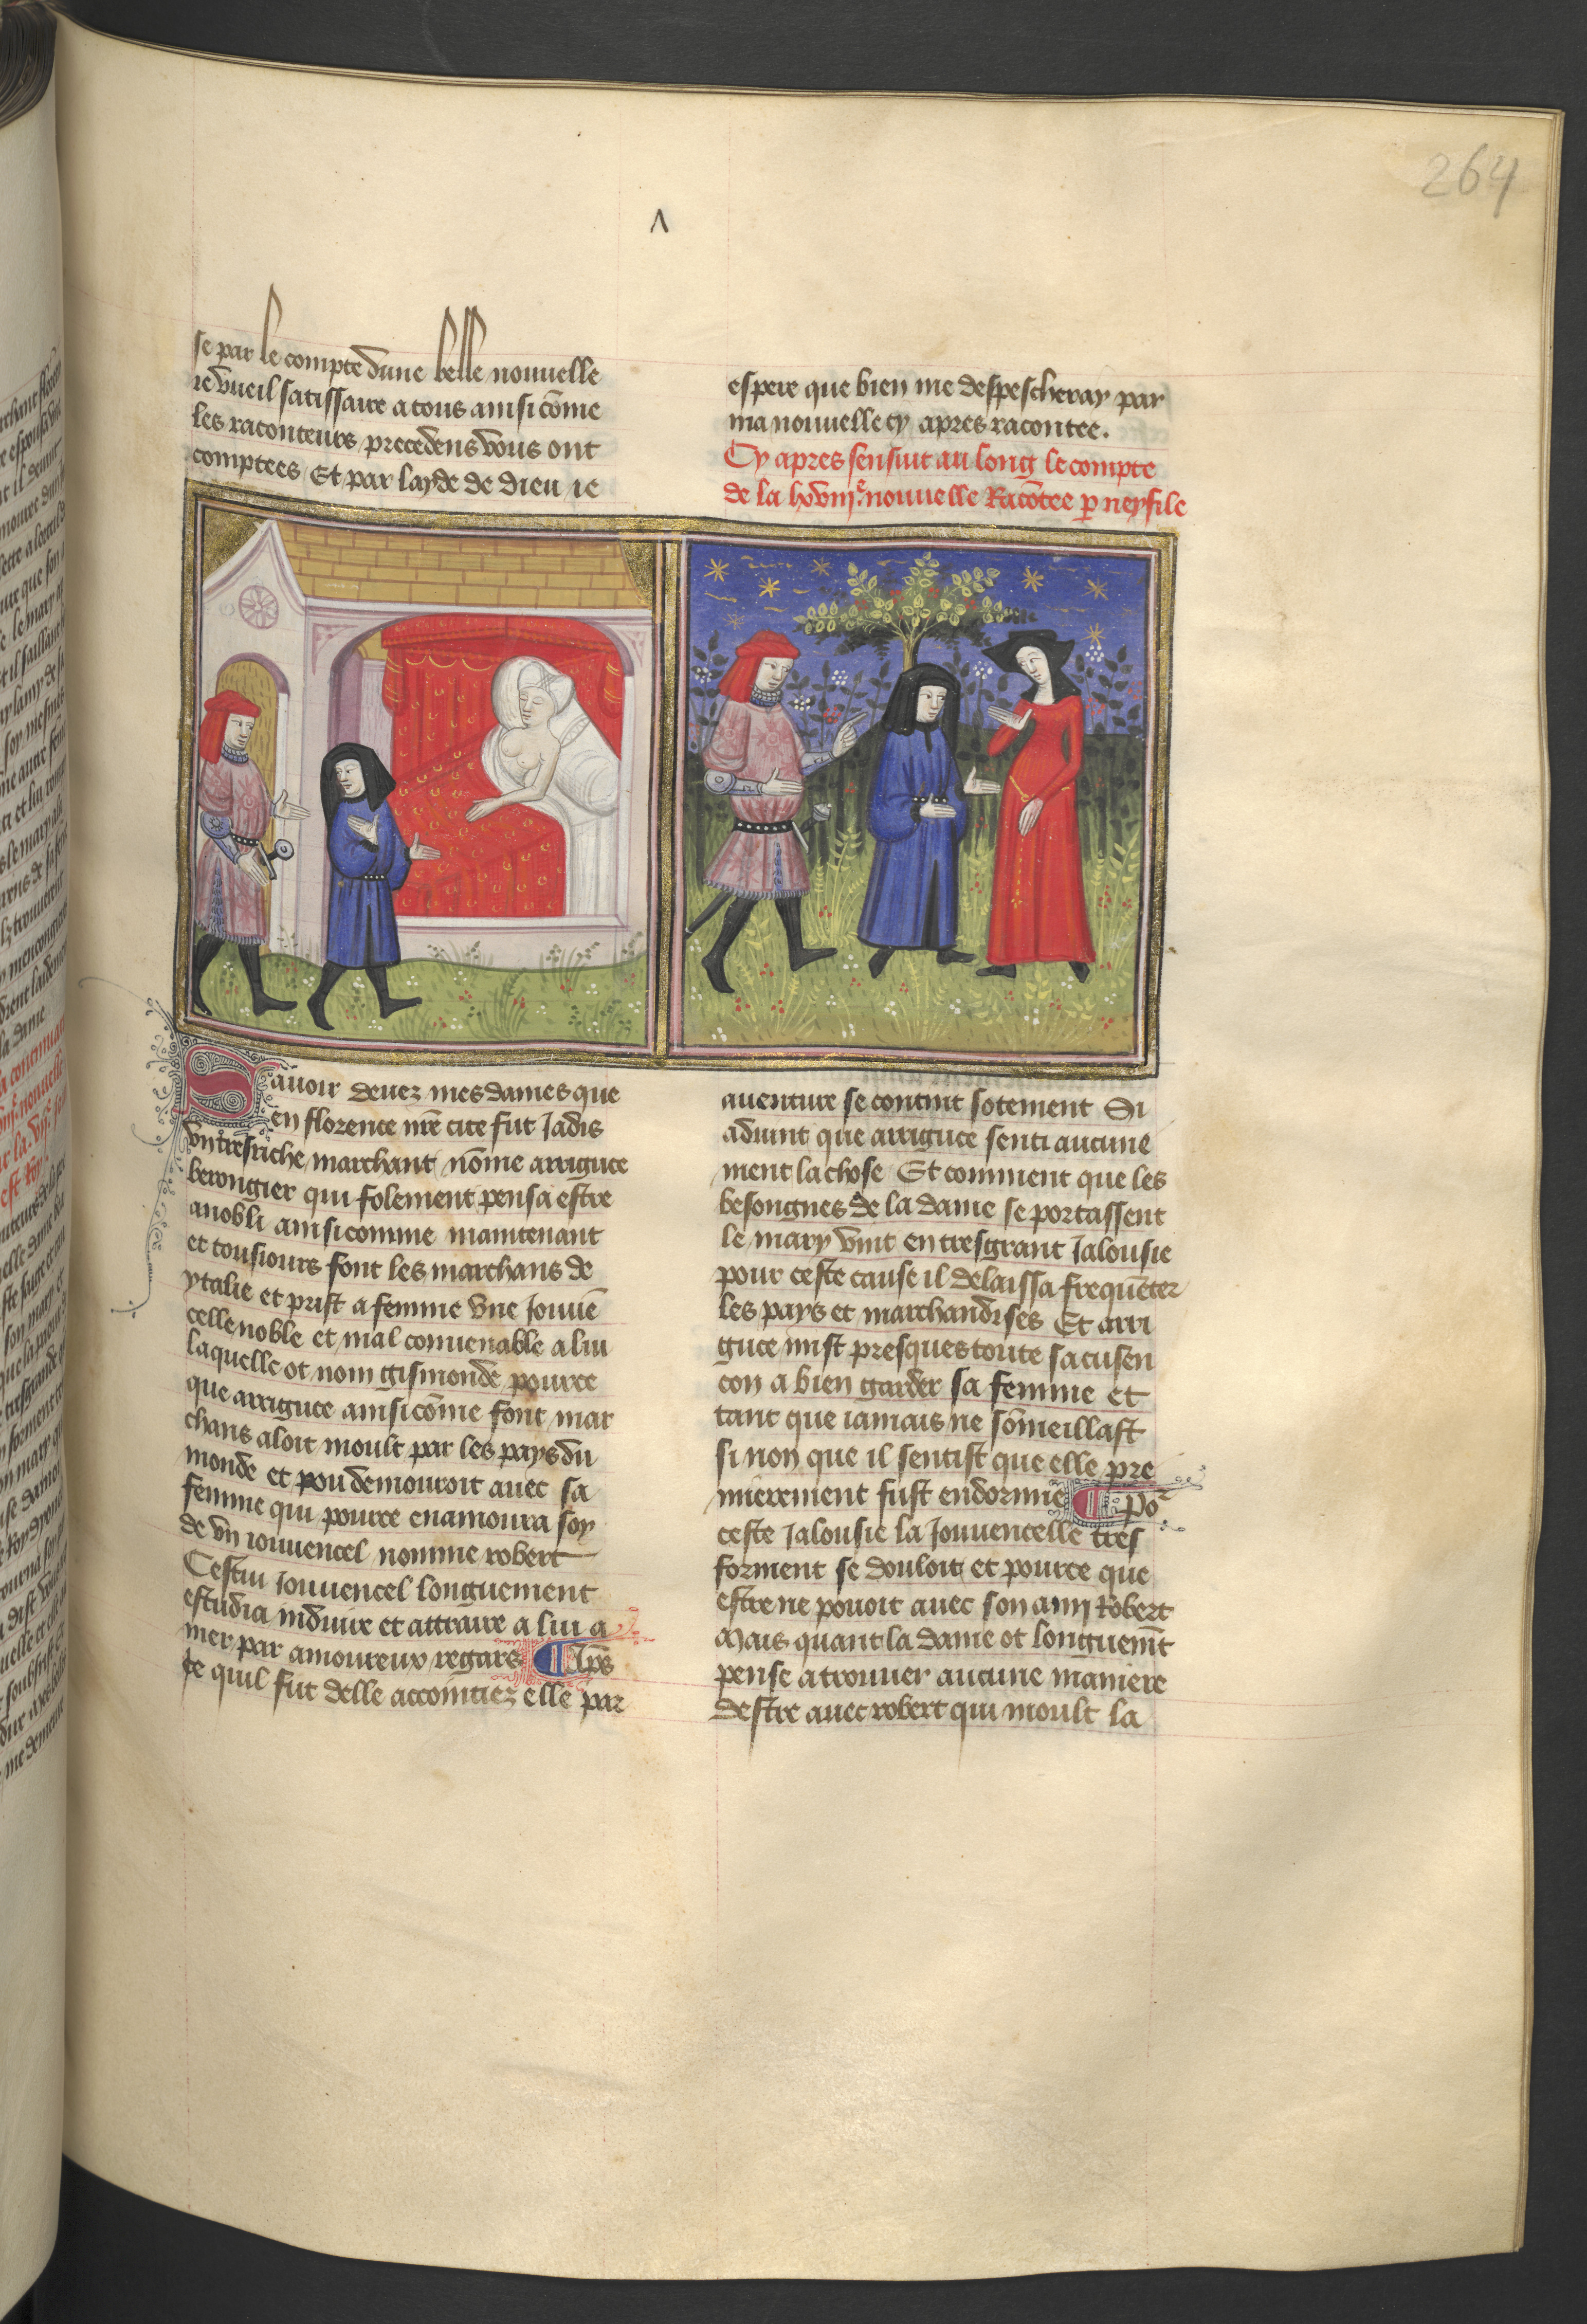 264
se par le compte dune belle nouuelle
ie vueil satissaire a tous ainsi cōme
les raconteurs precedens vous ont
comptees Et par layde de dieu ie
espere que bien me despescheray par
ma nouuelle cy apres racontee.
Cy apres sensuit au long le compte
de la lxviijᵉ. nouuelle Racōtee ꝑ neyfile
Sauoir deuez mes dames que
en florence nr̄e cite fut Jadis
vn tresriche marchant nōme arriguce
berongier qui folement pensa estre
anobli ainsi comme maintenant
et tousiours font les marchans de
ytalie et prist a femme vne Jouuē
celle noble et mal conuenable a lui
laquelle ot nom gismonde pource
que arriguce ainsi cōme font mar
chans aloit moult par les pays du
monde et pou demouroit auec sa
femme qui pource enamoura soy
de vn iouuencel nomme robert
Cestui Jouuencel longuement
estudia induire et attraire a lui a
mer par amoureux regars ¶ Apꝭ
ce quil fut delle accointiez elle par
auenture se contint sotement Si
aduint que arriguce senti aucune
ment la chose Et comment que les
besongnes de la dame se portassent
le mary vint en tresgrant Jalousie
pour ceste cause il delaissa frequēter
les pays et marchandises Et arri
guce mist presques toute sa cusen
con a bien garder sa femme et
tant que iamais ne sōmeillast
si non que il sentist que elle pre
mierement fust endormie ¶ Poʳ
ceste Jalousie la Jouuencelle tres
forment se douloit et pource que
estre ne pouoit auec son amj Robert
Mais quant la dame ot longuemt̄
pense a trouuer aucune maniere
destre auec robert qui moult la